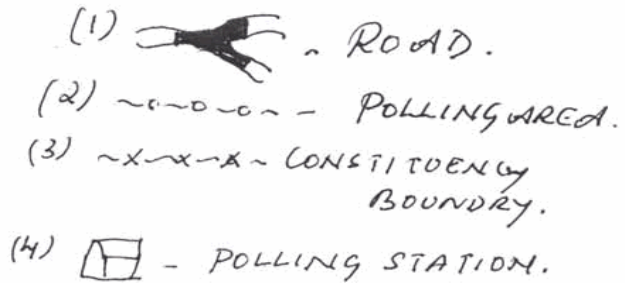 (1) - ROAD.
(2) ~o~o~o~ - POLLING AREA.
(3) ~x~x~x~ CONSTITUENCY
BOUNDRY.
(4) - POLLING STATION.